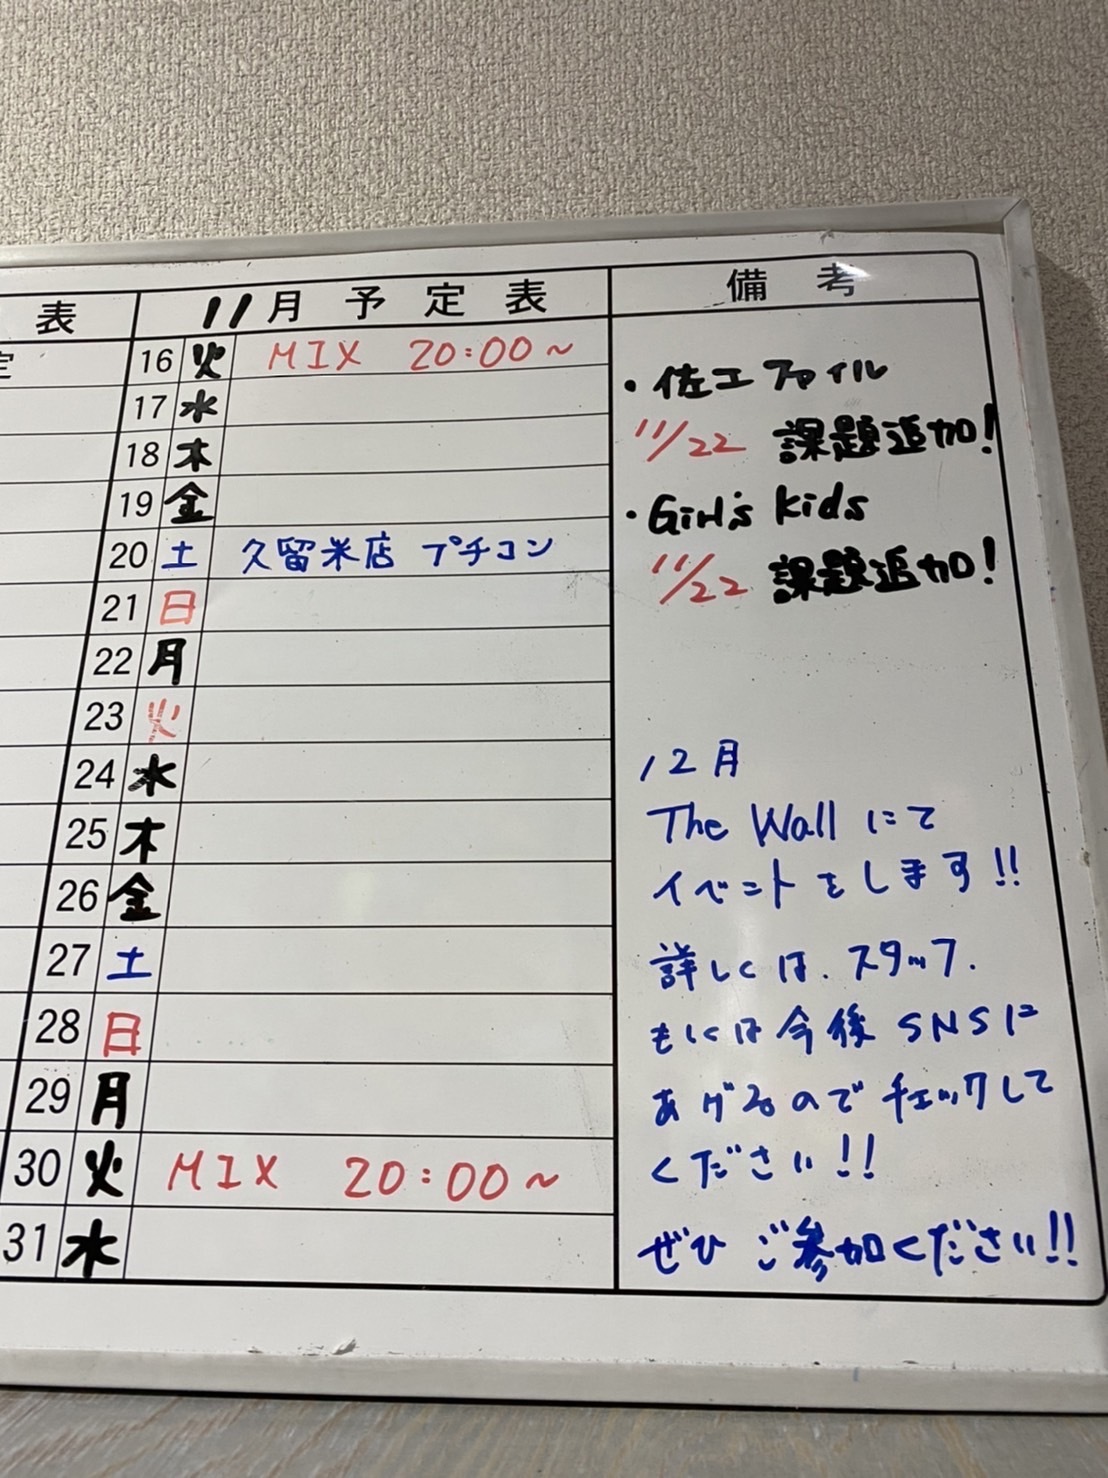 表
11月予定表
備考
定
16 火 MIX 20:00~
17 水
18 木
19 金
20 土 久留米店 プチコン
21 日
22 月
23 火
24 水
25 木
26 金
27 土
28 日
29 月
30 火 MIX 20:00~
31 水
・佐工ファイル
11/22 課題追加!
・Girl's Kids
11/22 課題追加!
12月
The Wall にて
イベントをします!!
詳しくは、スタッフ、
もしくは今後SNSに
あげるのでチェックして
ください!!
ぜひ ご参加ください!!